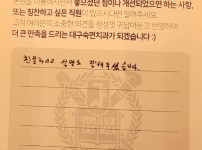 면원을 이용하시면서 좋으셨던 점이나 개선되었으면 하는 사항,
또는 칭찬하고 싶은 직원이 있으시다면 알려주세요.
고객 여러분의 소중한 의견을 정성껏 귀담아듣고 반영하여
더 큰 만족을 드리는 대구숙면치과가 되겠습니다 :)
친절하고 설명도 잘해주셨습니다.